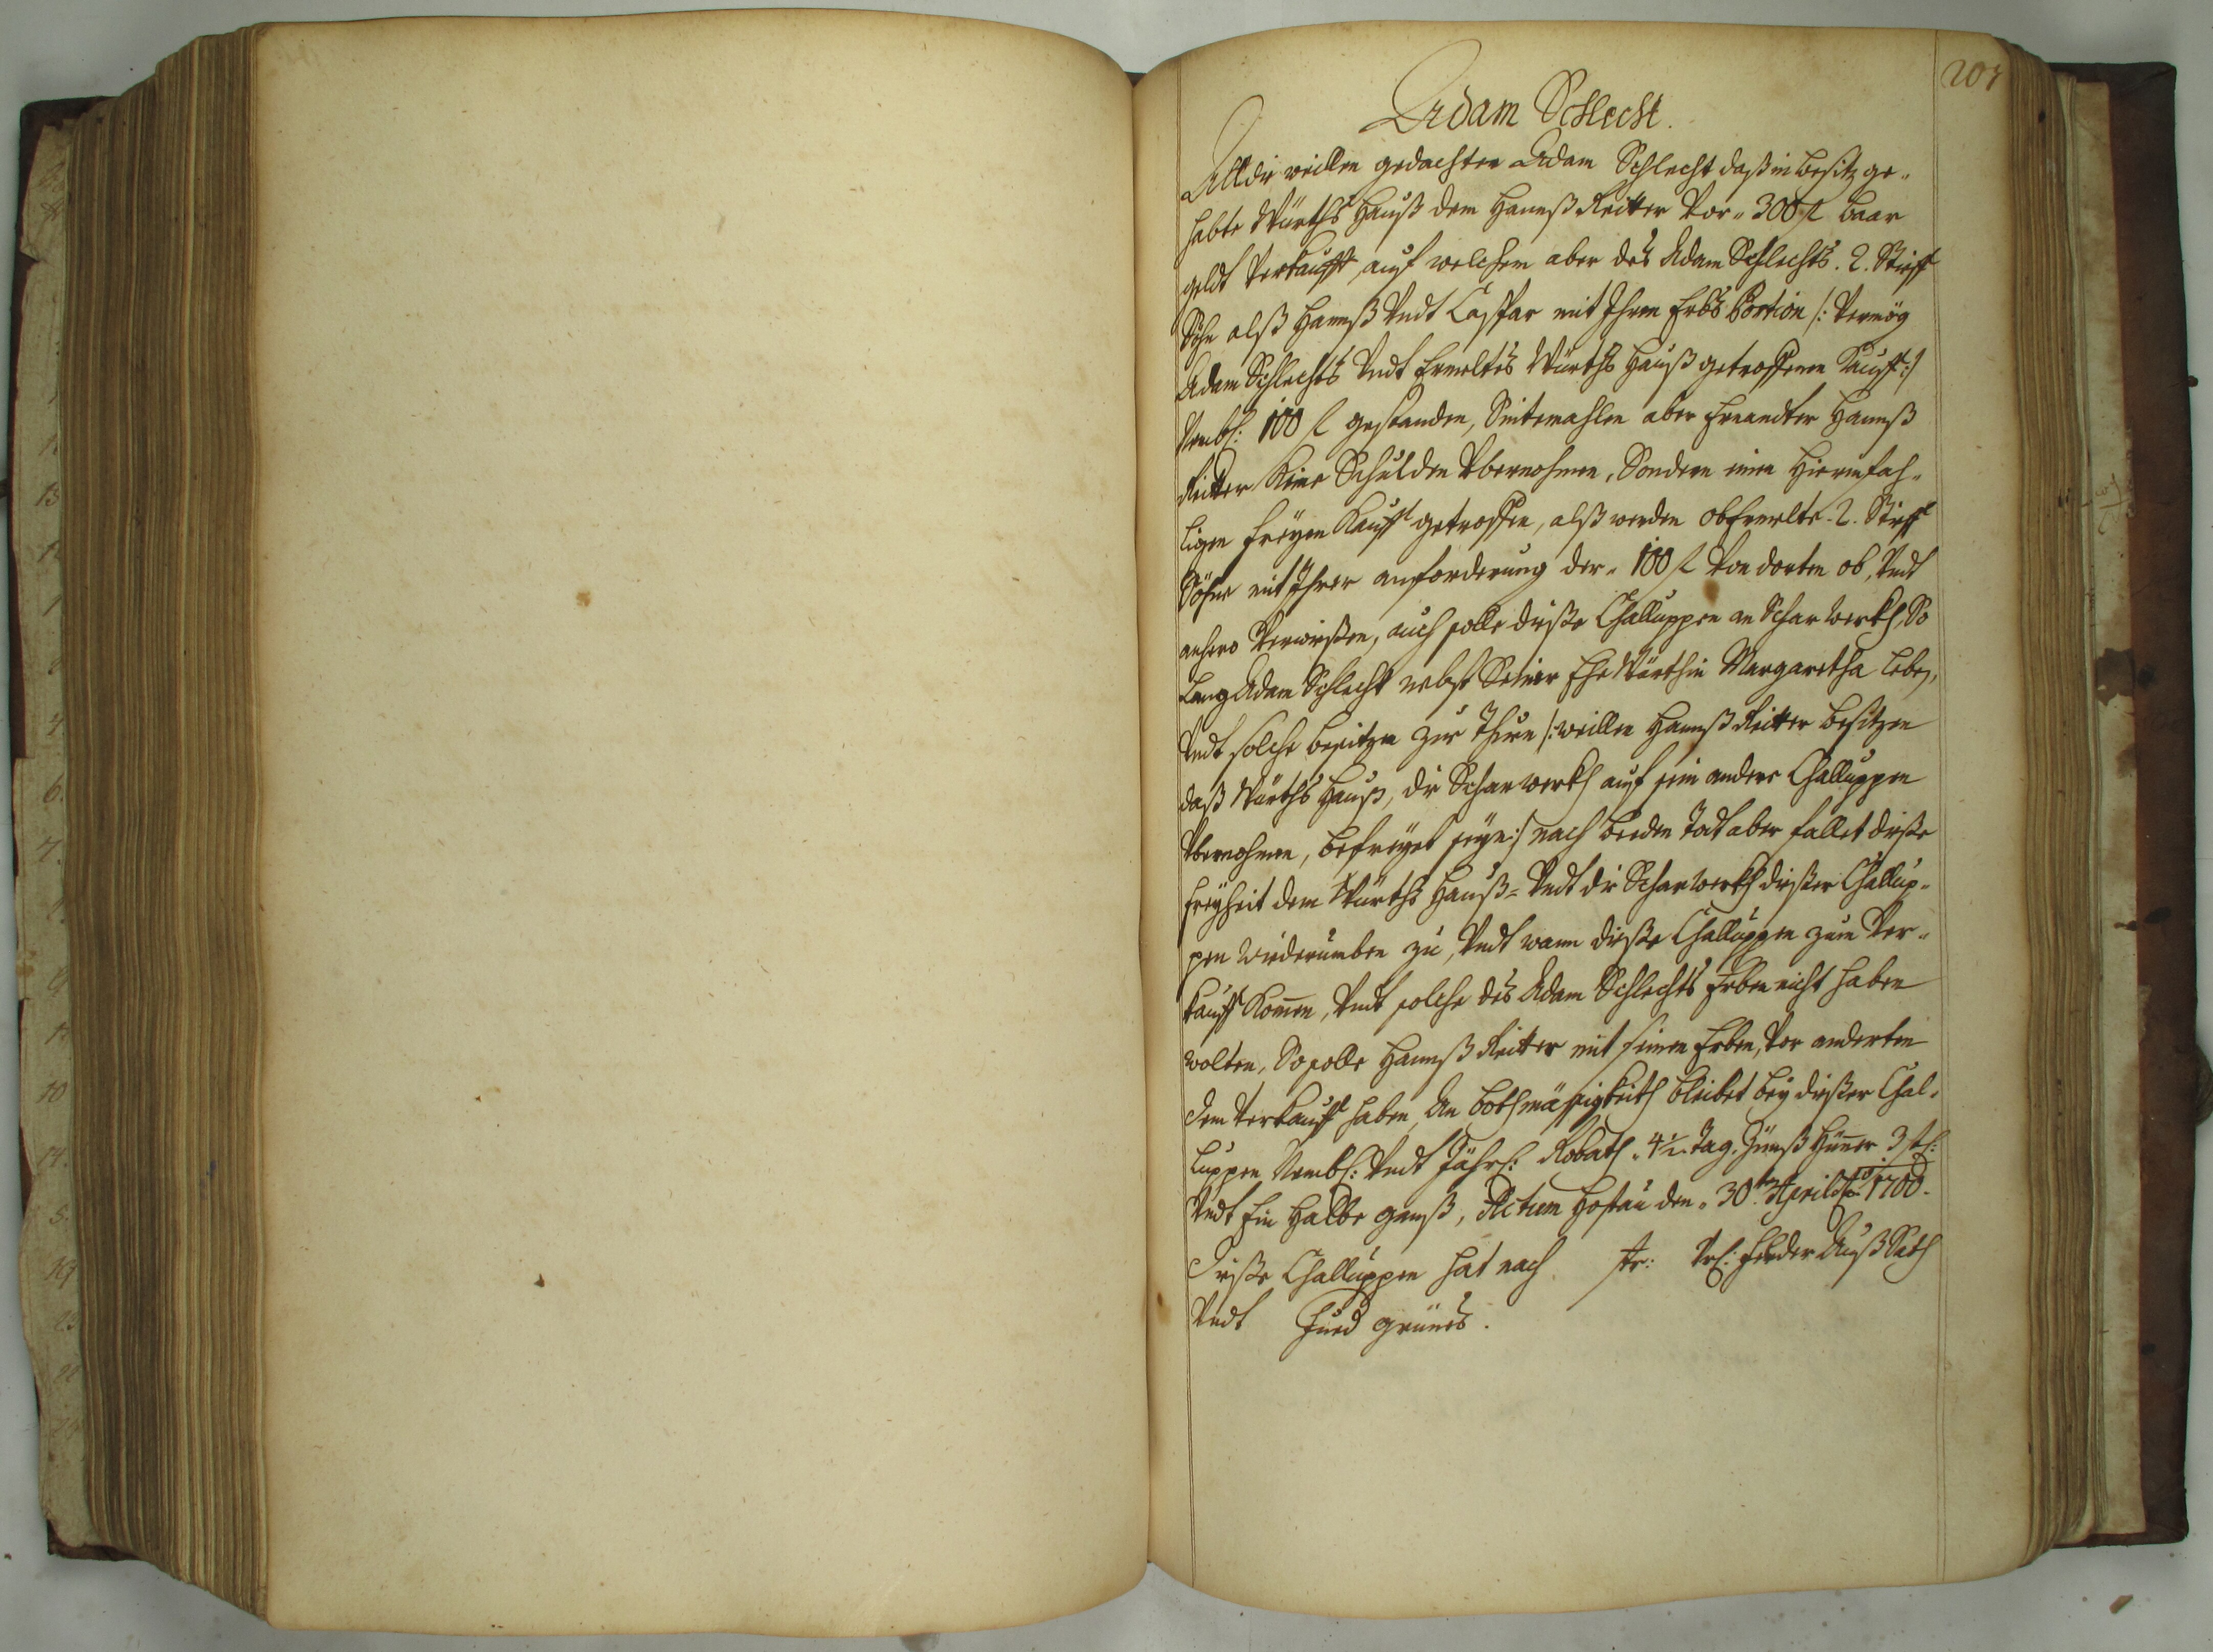 207
Adam Schlecht.
Alldie weillen gedachter Adam Schlecht daß in besitz ge-
habte Würths Hauß dem Hannß Reitter vor 300 fl baar
geldt verkaufft, auf welchem aber des Adam Schlechts 2. Stieff
Söhn alß Hannß undt Caspar mit Ihren Erbs Portion /: vermög
Adam Schlechts undt Ermeltes Würths Hauß getroffenen Kauff :/
Nembl: 100 fl gestanden, Sintemahlen aber Ernandter Hannß
Reitter Keine Schulden übernohmen, Sondern einen
ligen freyen Kauff getroffen, alß werden obermelte 2. Stieff
Söhne mit Ihrer anforderung der 100 fl von dorten ob, undt
anhero verwießen, auch solle dieße Challuppen an Scharwerkh, So
Lang Adam Schlecht nebst Seiner Ehe Würthin Margaretha Leben,
undt solche besitzen zur /: weillen Hannß Reitter besitzer
daß Würths Hauß, die Scharwerkh auf sein andere Challuppen
übernohmen, befreyet seyn :/ nach beeden Todt aber fallet dieße
freyheit dem Würths Hauß- undt die Scharwerkh dießer Challup-
pen widerumben zu, undt wann dieße Challuppen zum Ver-
kauff Komen, undt solche des Adam Schlechts Erben nicht haben
wolten, So solle Hannß Reitter mit seinen Erben, vor anderten
den verkauff haben, An bothmäßigkeith bleibet bey dießer Chal-
luppen Nembl: undt Jährl: Robath 4½ Tag. Hüner 3 st:
undt Ein Halbe ganß, Actum Hostau den 30. April Ao 1700.
Dieße Challuppen hat nach str:
undt